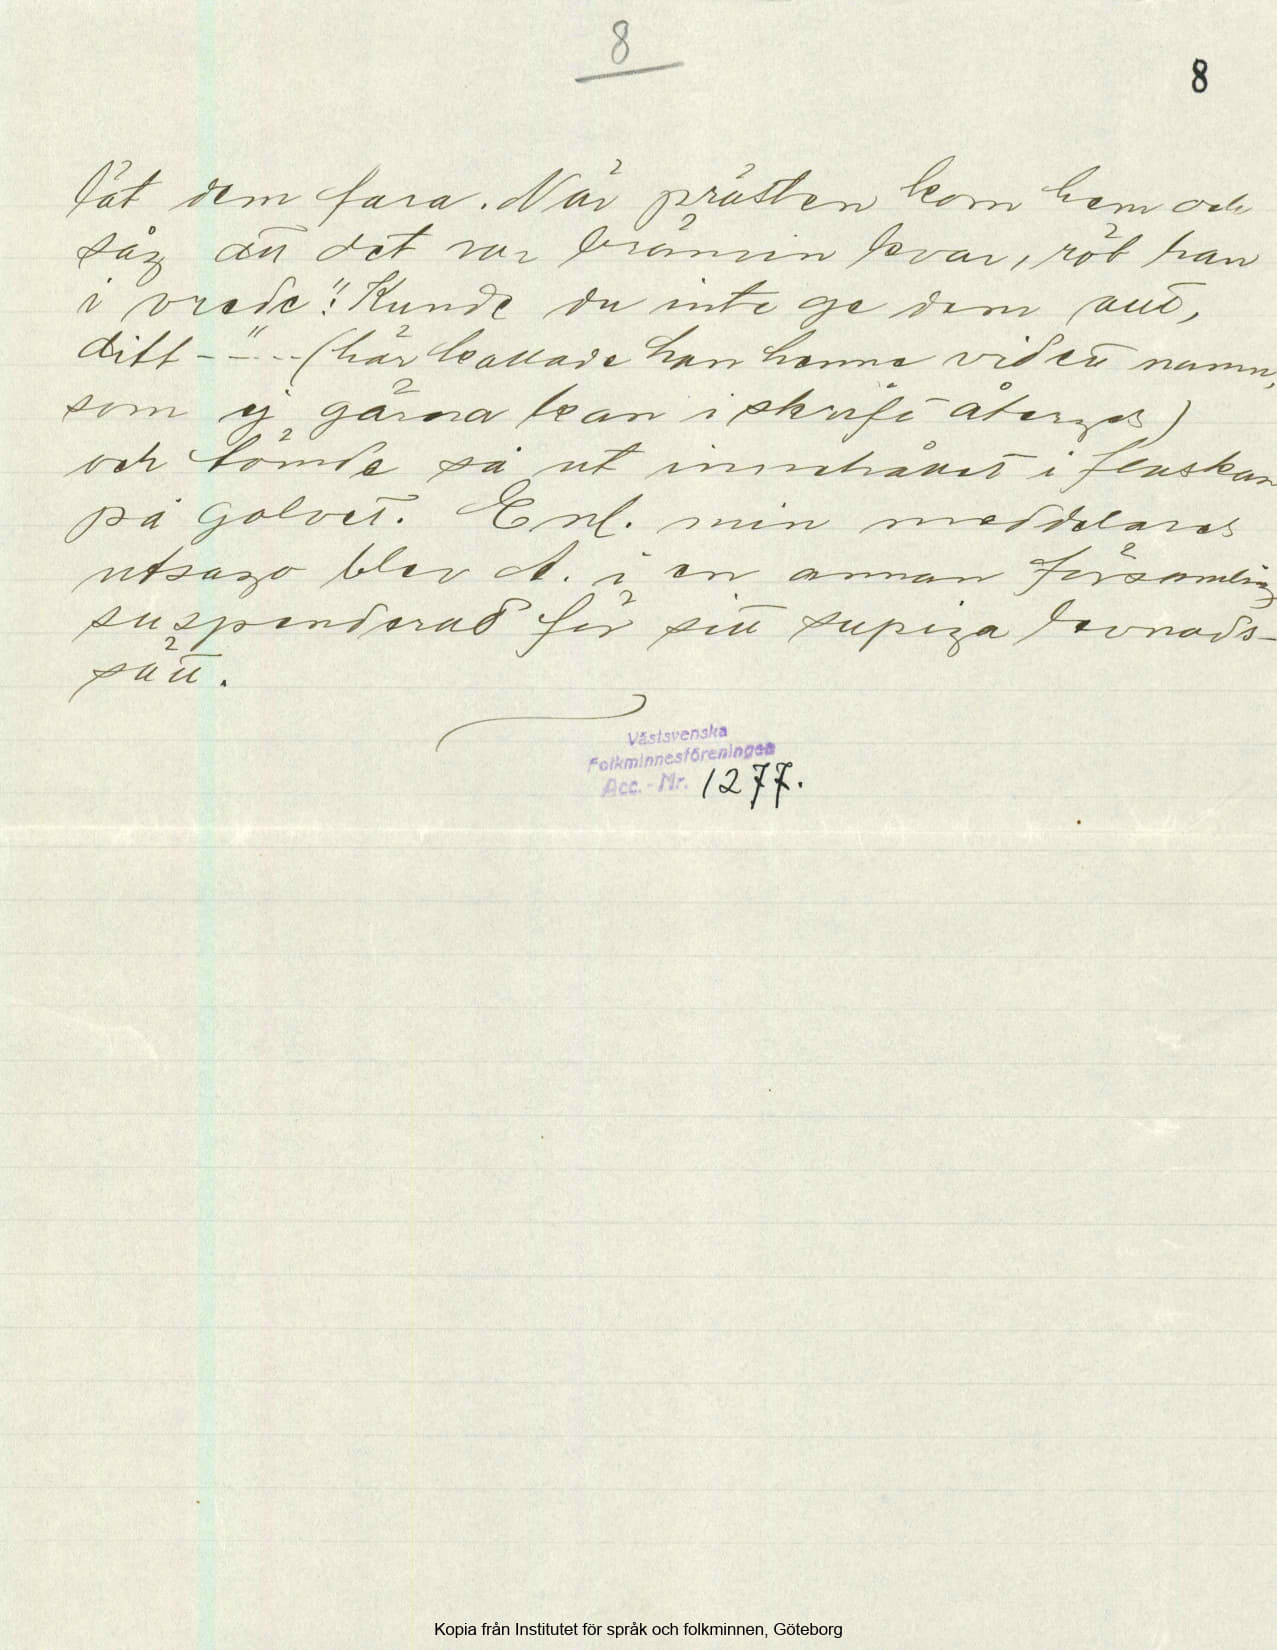 8
8
lät dem fara. När prästen kom hem och
såg att det var brännvin kvar, röt han
i vrede: "Kunde du inte ge dem allt,
ditt - - - -" (här kallade han henne vid ett namn,
som ej gärna kan i skrift återges)
och tömde så ut innehållet i flaskan
på golvet. Enl. min meddelares
utsago blev A. i en annan församling
suspenderad för sitt supiga levnads-
sätt.
Västsvenska
Folkminnesföreningen
Acc.-Nr. 1277.
Kopia från Institutet för språk och folkminnen, Göteborg